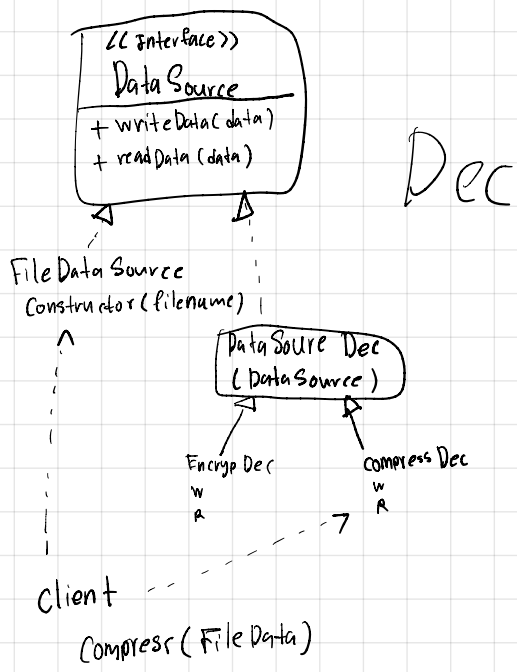 <<Interface>>
DataSource
+ writeData(data)
+ readData(data)
Dec
FileDataSource
Constructor(filename)
DataSoure Dec
(DataSource)
Encryp Dec
W
R
Compress Dec
W
R
Client
Compress(FileData)